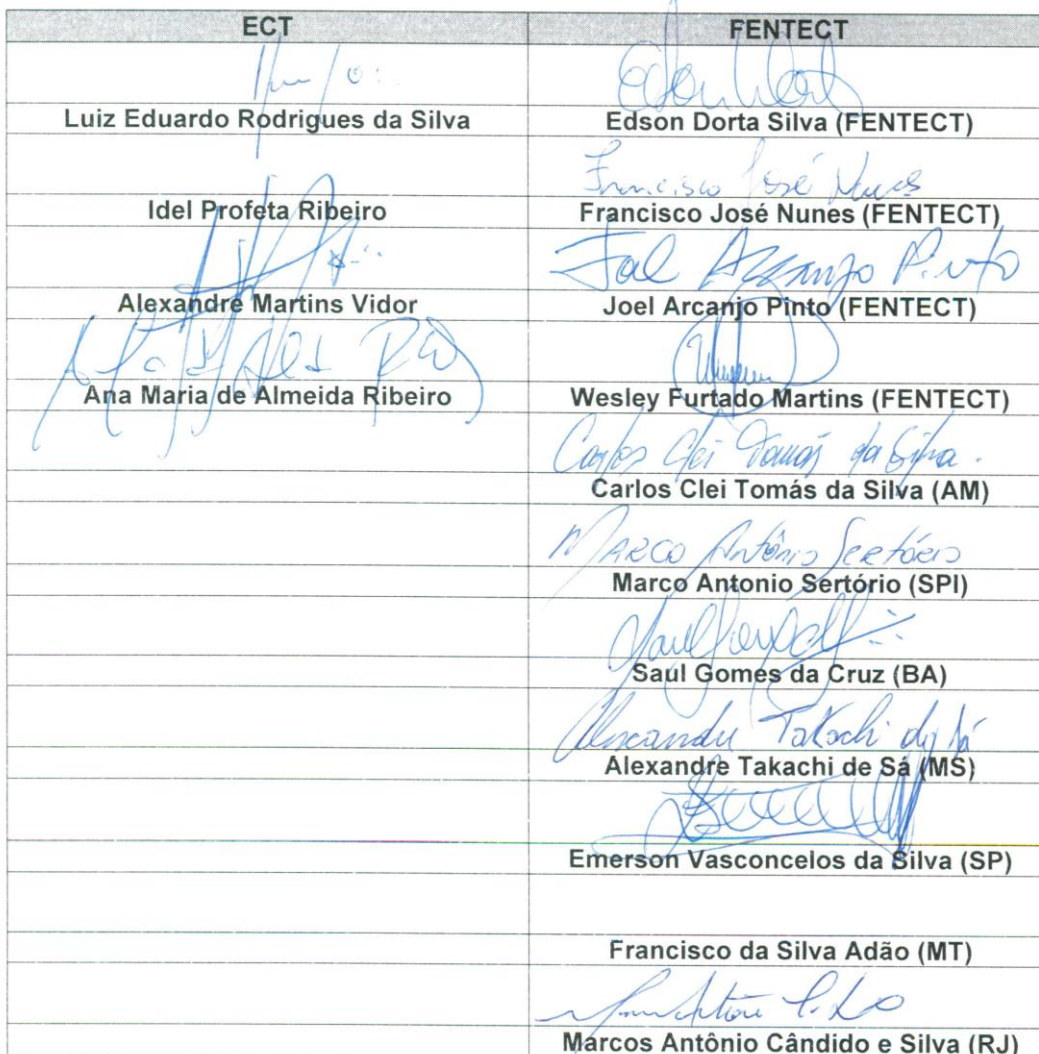 ECT
FENTECT
Luiz Eduardo Rodrigues da Silva
Edson Dorta Silva (FENTECT)
Francisco José Nunes
Idel Profeta Ribeiro
Francisco José Nunes (FENTECT)
Joel Arcanjo Pinto
Alexandre Martins Vidor
Joel Arcanjo Pinto (FENTECT)
Ana Maria de Almeida Ribeiro
Wesley Furtado Martins (FENTECT)
Carlos Clei Tomás da Silva.
Carlos Clei Tomás da Silva (AM)
Marco Antônio Sertório
Marco Antonio Sertório (SPI)
Saul Gomes da Cruz (BA)
Alexandre Takachi de Sá
Alexandre Takachi de Sá (MS)
Emerson Vasconcelos da Silva (SP)
Francisco da Silva Adão (MT)
Marcos Antônio Cândido e Silva (RJ)